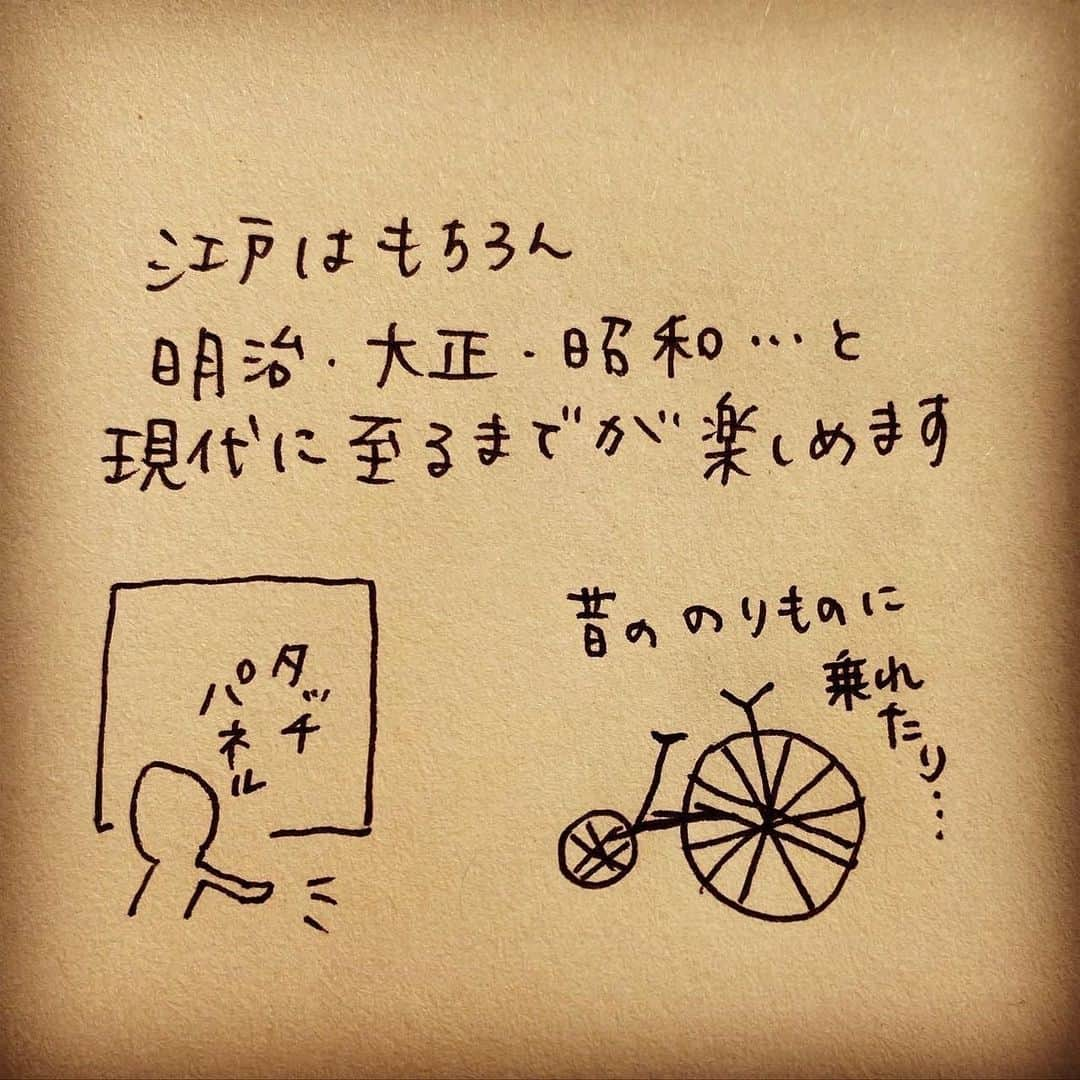 江戸はもちろん
明治・大正・昭和…と
現代に至るまでが楽しめます
タッチ
パネル
昔ののりものに
乗れ
たり…